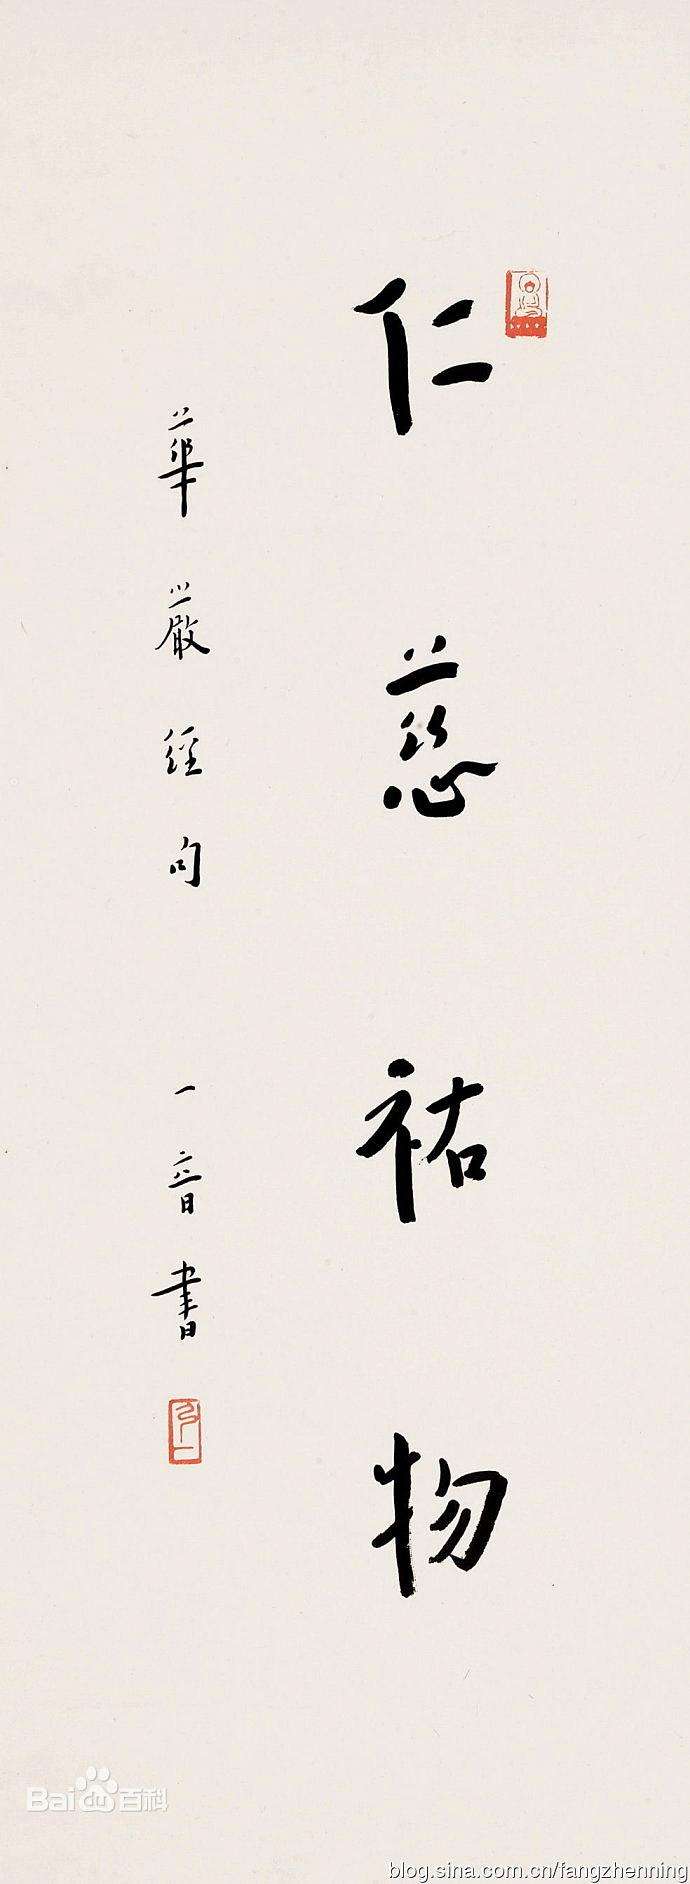 仁慈祐物
華嚴經句 一音書
Baidu百科
blog.sina.com.cn/fangzhenning